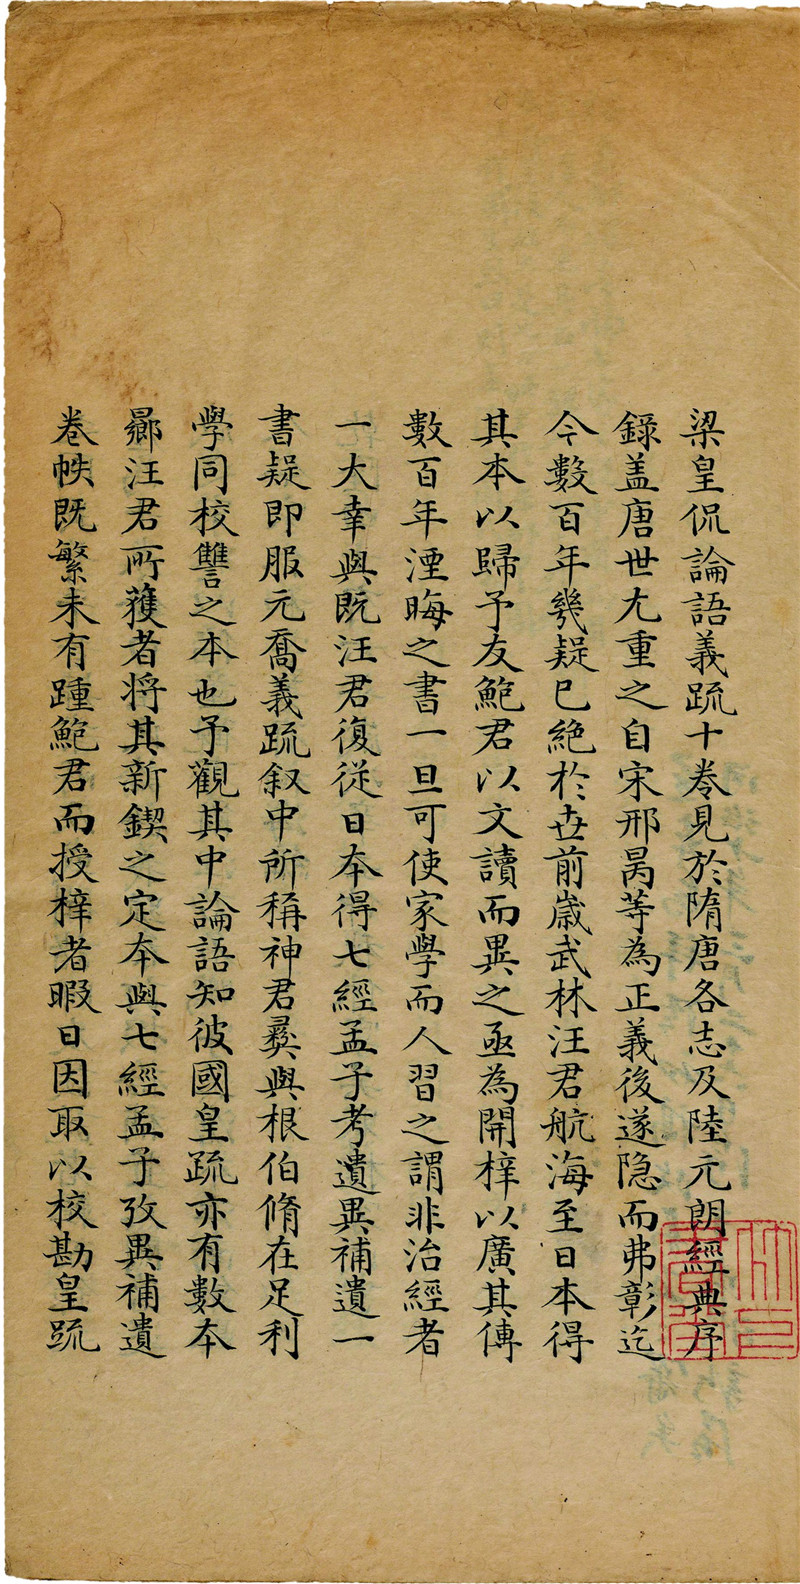 梁皇侃論語義疏十卷見於隋唐各志及陸元朗經典序
錄盖唐世尤重之自宋邢昺等為正義後遂隐而弗彰迄
今數百年幾疑已絶於世前歲武林汪君航海至日本得
其本以歸予友鮑君以文讀而異之亟為開梓以廣其傳
數百年湮晦之書一旦可使家學而人習之謂非治經者
一大幸與既汪君復從日本得七經孟子考遺異補遺一
書疑即服元喬義疏叙中所稱神君彞與根伯脩在足利
學同校讐之本也予觀其中論語知彼國皇疏亦有數本
曏汪君所獲者将其新鍥之定本與七經孟子攷異補遺
卷帙既繁未有踵鮑君而授梓者暇日因取以校勘皇疏